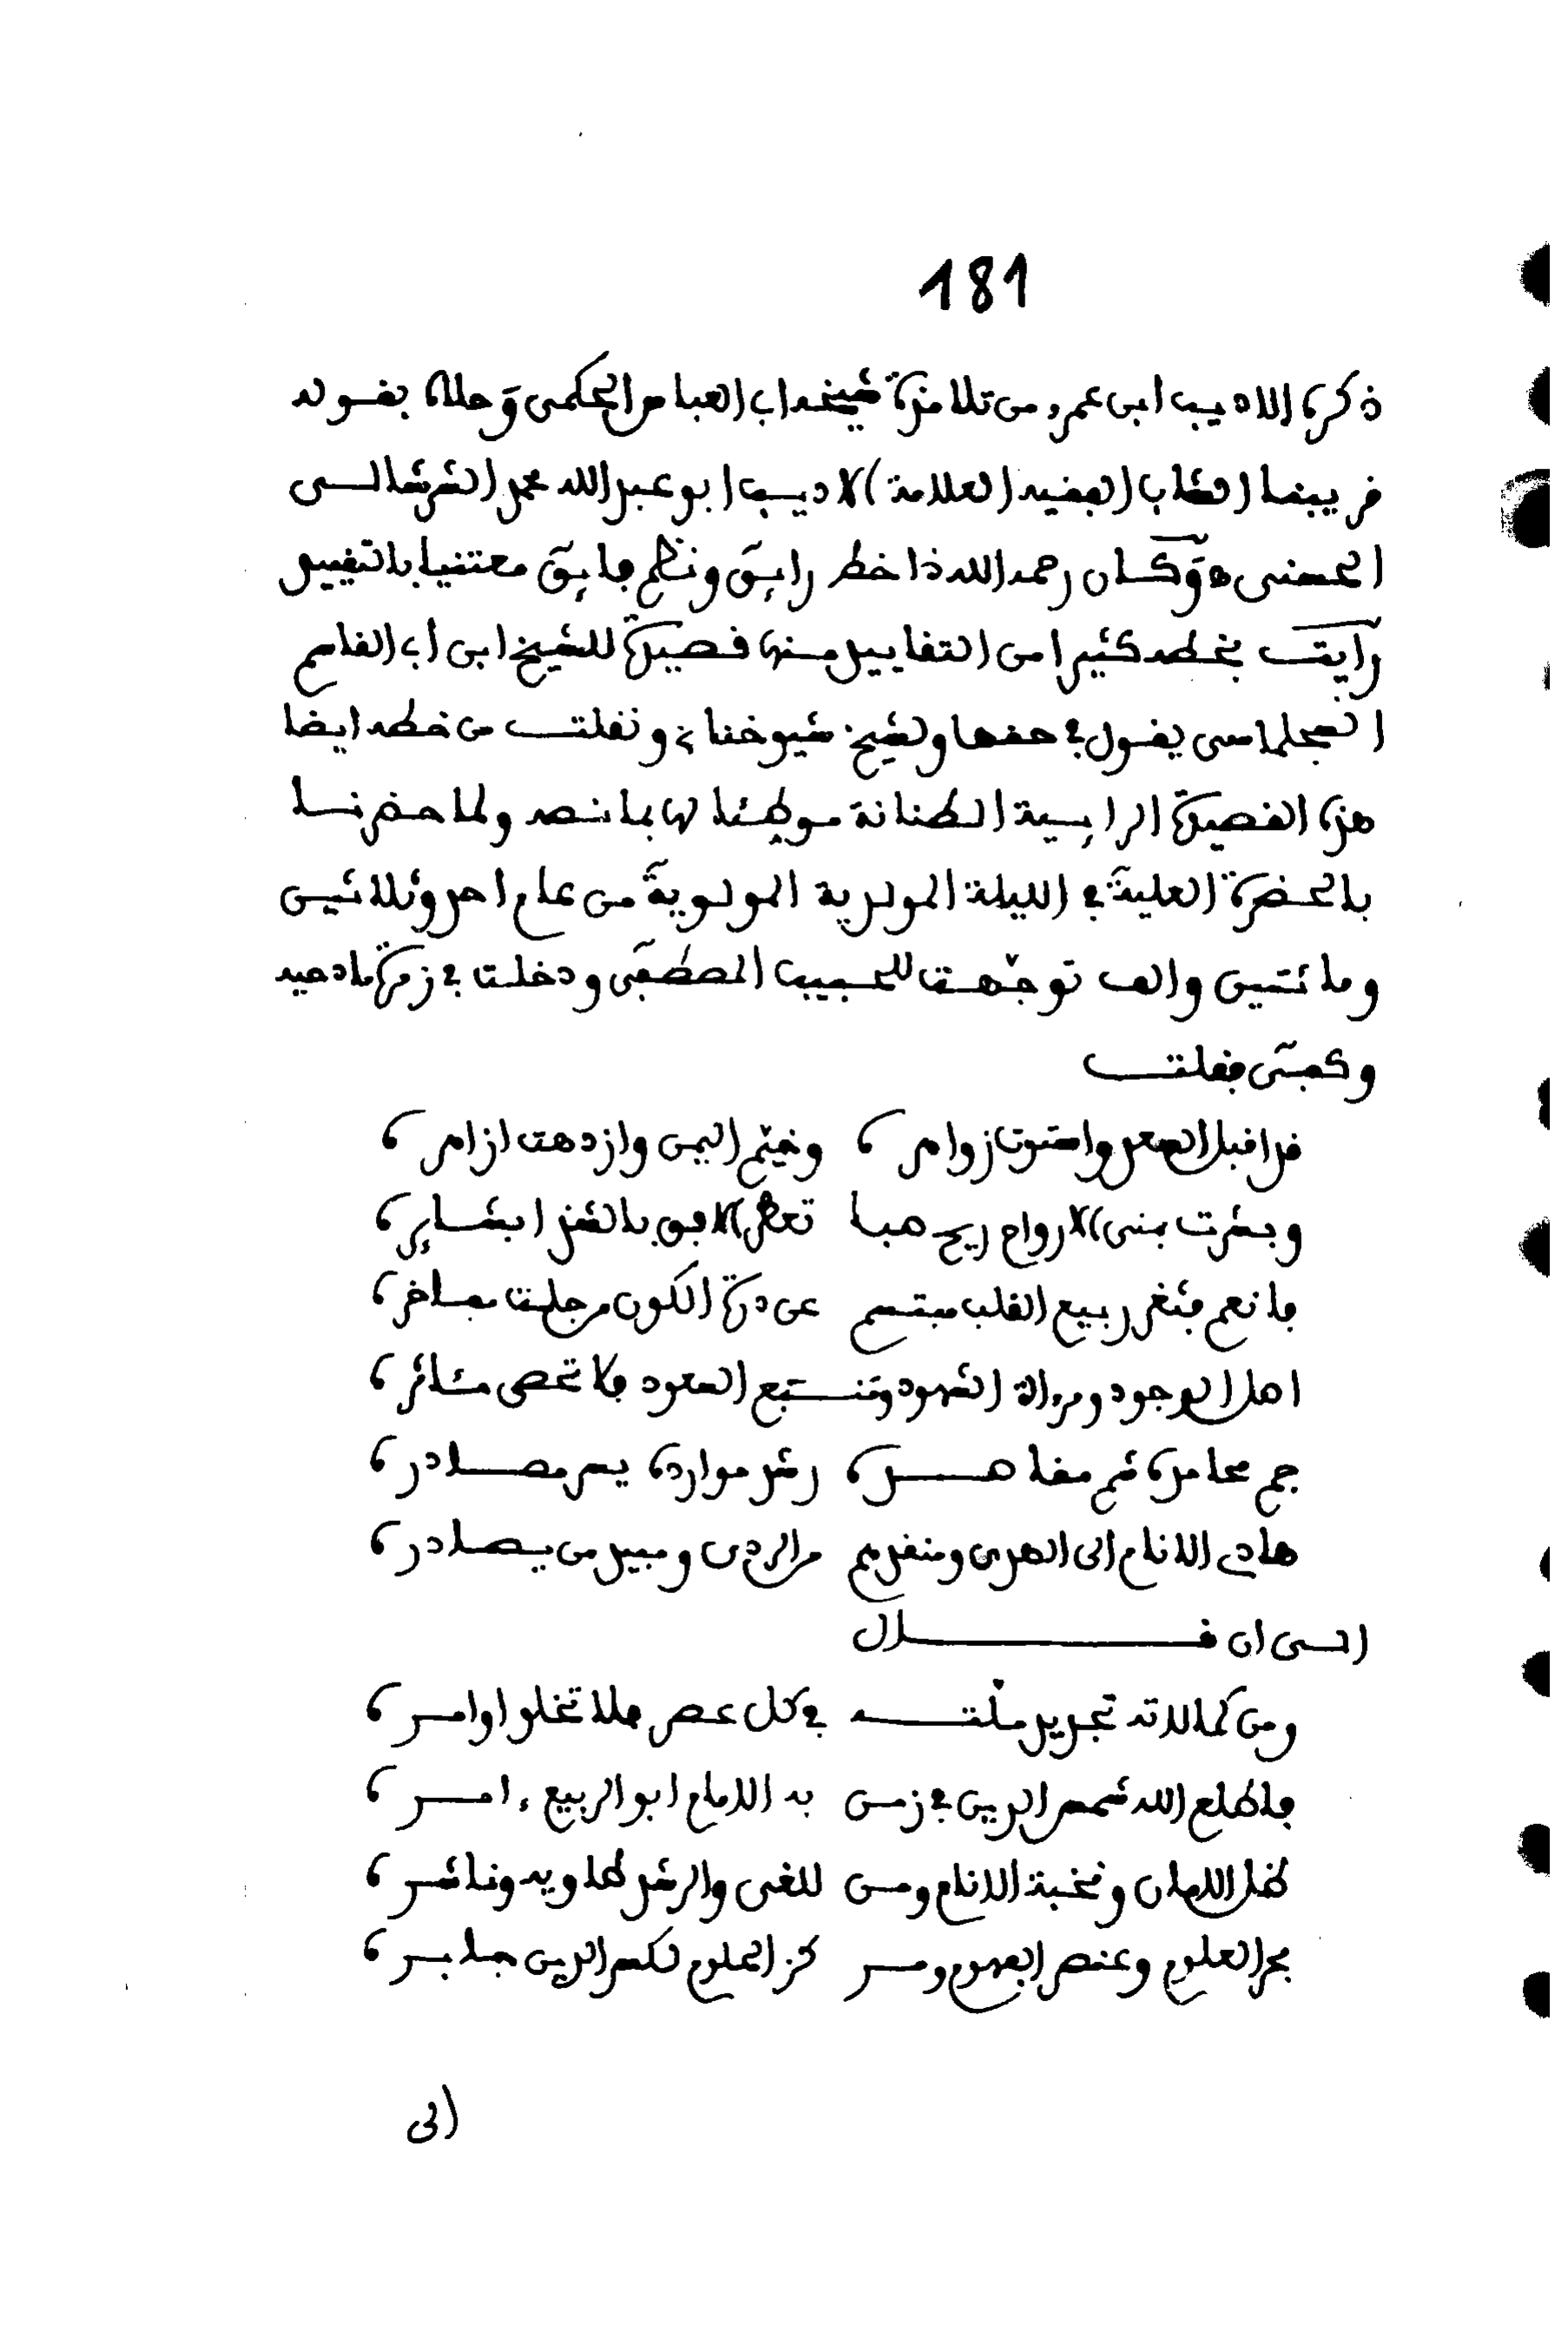 181
ذكره الاديب ابن عمرو من تلامذة شيخه ابي العباس الحكمي وحلاه بقوله
قريبنا الشاب الفقيه العلامة الاديب ابو عبد الله محمد الشرشالي
الحسني ه وكان رحمه الله ذا خط رايق ونظم فايق معتنيا بالتقييد
رايت بخطه كثيرا من التقاييد منها قصيدة للشيخ ابن ابي القاسم
السجلماسي يقول في حقها ولشيخ شيوخنا ونقلت من خطه ايضا
هذه القصيدة الرايية الطنانة موطئا لها بما نصه ولما حضرنا
بالحضرة العلية في الليلة المولدية المولوية من عام احد وثلاثين
ومائتين والف توجهت للحبيب المصطفى ودخلت في زمرة مادحيه
وكفى فقلت
قد اقبل السعد واستوت زوامره وخيم اليمن وازدهت ازامره
وبشرت بمنى الارواح ريح صبا تعطر الافق بالشذا بشايره
فانعم فثغر ربيع القلب مبتسم عن درة الكون من جلت مفاخره
اصل الوجود ومرءاة الشهود ومنبع السعود فلا تحصى مئاثره
جم محامده شم مفاخره رشد موارده يسر مصادره
هادي الانام الى الهدى ومنقذهم من الردى ومبيد من يصادره
الى ان قال
ومن كمالاته تجديد ملته في كل عصر فلا تخلو اوامره
فاطلع الله شمس الدين في زمن به الامام ابو الربيع ءامره
ظل الامان ونخبة الانام ومن للغى والرشد طاويه وناشره
بحر العلوم وعنصر الفهوم ومن كنز الحلوم لكسر الدين جابره
الى